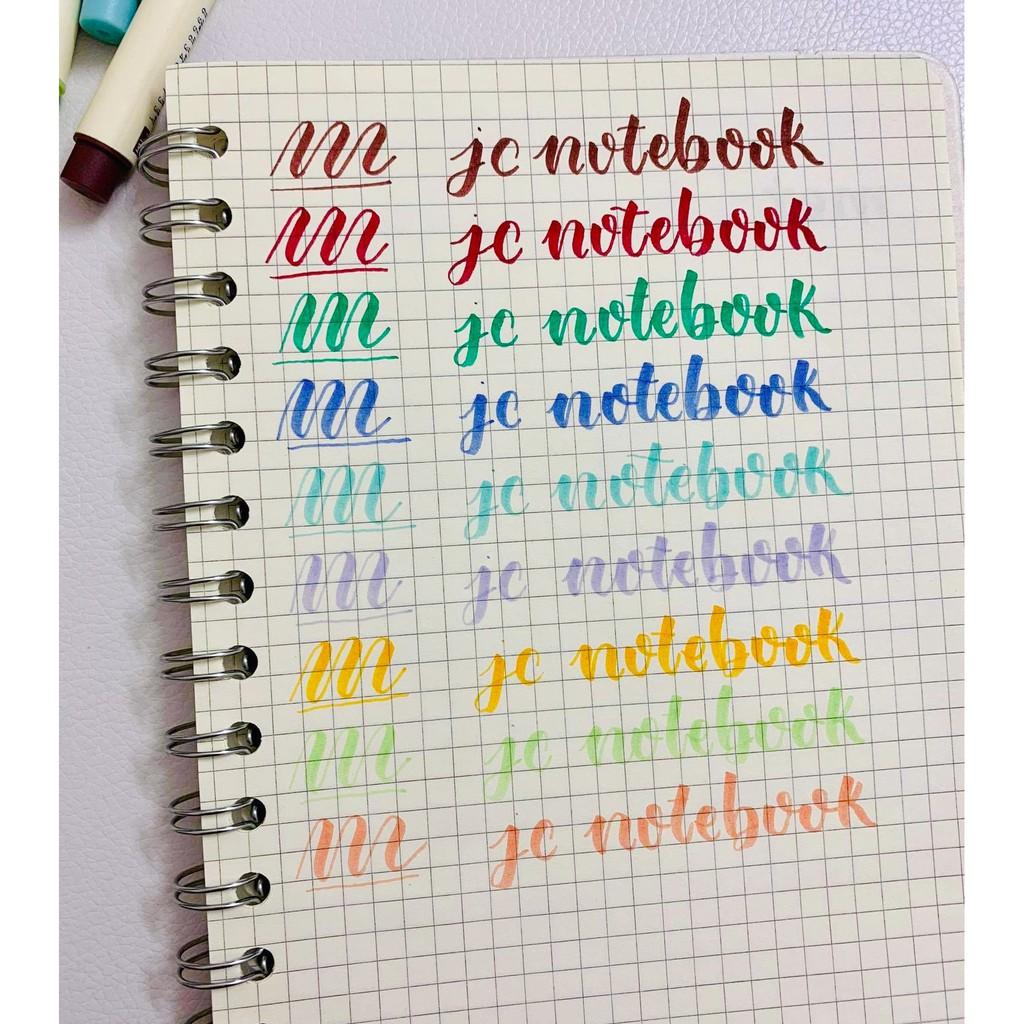 m jc notebook
m jc notebook
m jc notebook
m jc notebook
m jc notebook
m jc notebook
m jc notebook
m jc notebook
m jc notebook